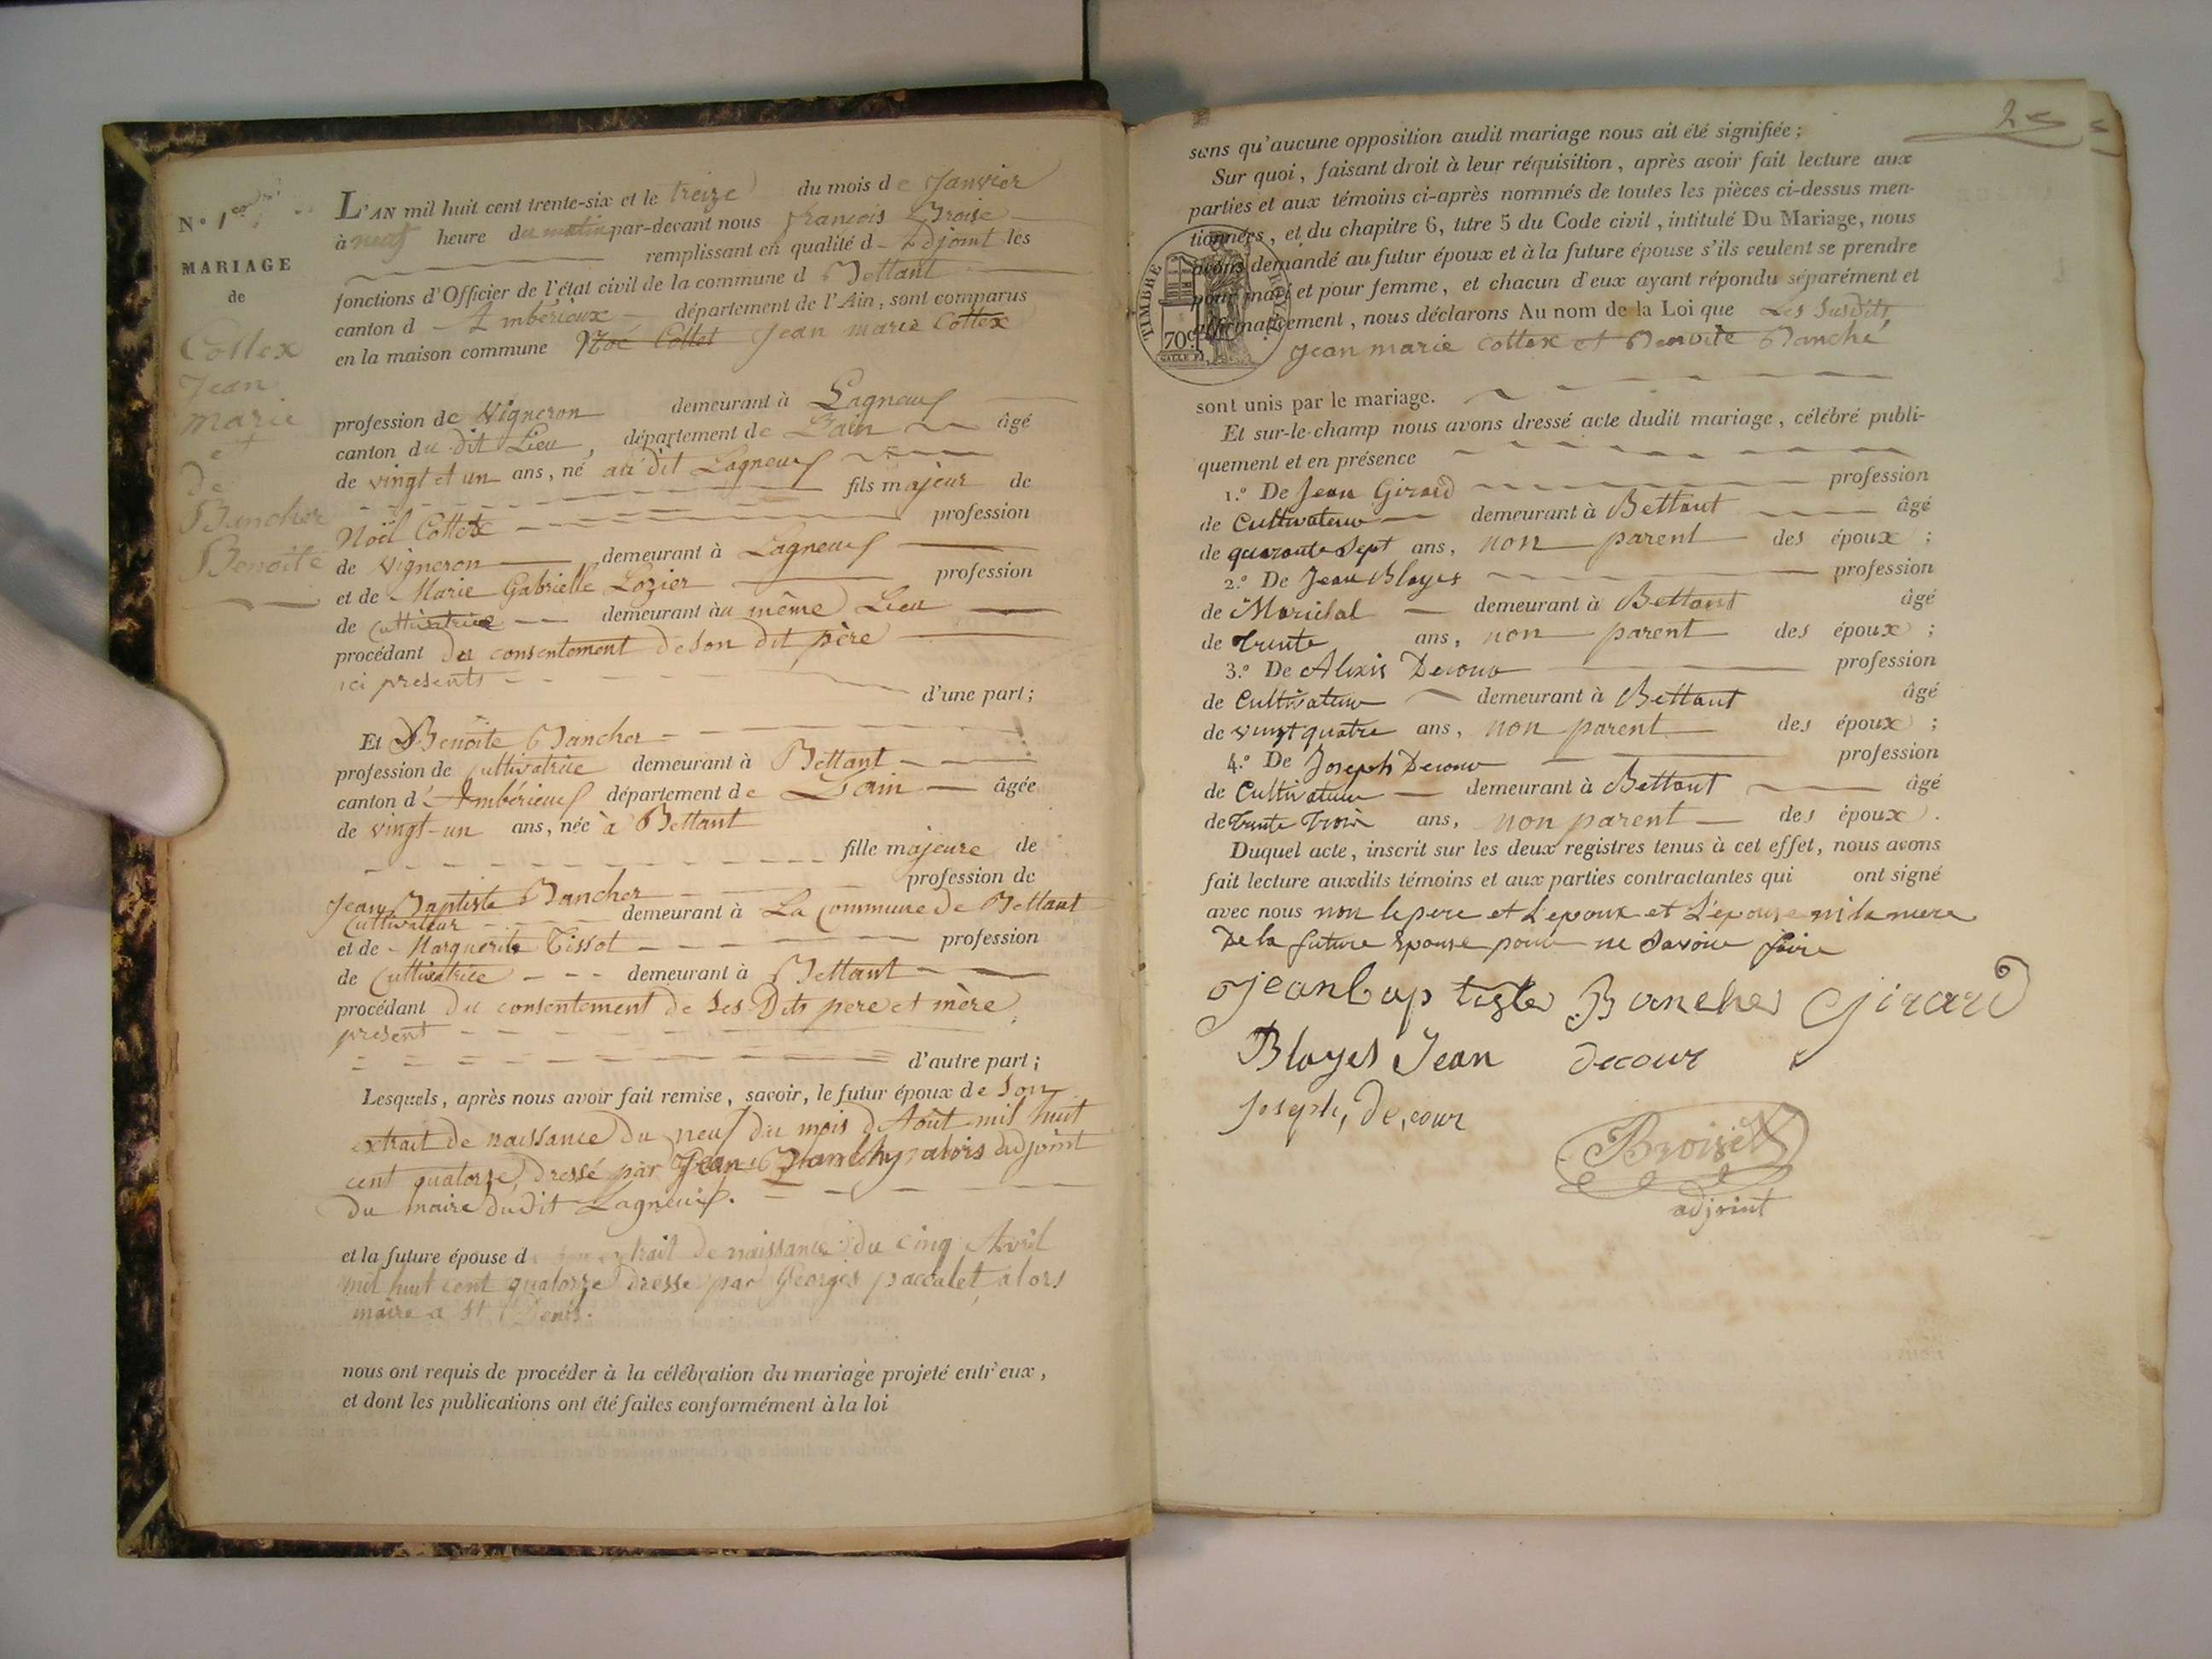 N.o 1er
MARIAGE
de
Collex
Jean
marie
et
de
Bancher
Benoite
L'AN mil huit cent trente-six et le treize du mois de Janvier
à neuf heure du matin par-devant nous francois Broise
remplissant en qualité d adjoint les
fonctions d'Officier de l'état civil de la commune d Bettant
canton d Ambérieux département de l'Ain, sont comparus
en la maison commune Noé Collet Jean marie Cottex
profession de Vigneron demeurant à Lagneuf
canton du dit Lieu, département de Lain âgé
de vingt et un ans, né au dit Lagneuf
fils majeur de
Noël Cottex profession
de Vigneron demeurant à Lagneuf
et de Marie Gabrielle Lozier profession
de cultivatrice demeurant au même Lieu
procédant du consentement de son dit père
ici presents d'une part;
Et Benoite Bancher
profession de cultivatrice demeurant à Bettant
canton d'Ambérieuf département de Lain âgée
de vingt-un ans, née à Bettant
fille majeure de
Jean Baptiste Bancher profession de
Cultivateur demeurant à La Commune de Bettant
et de Marguerite Tissot profession
de Cultivatrice demeurant à Bettant
procédant du consentement de ses Dits pere et mère
present
d'autre part;
Lesquels, après nous avoir fait remise, savoir, le futur époux de son
extrait de naissance du neuf du mois d'Août mil huit
cent quatorze, dressé par Jean alors adjoint
du maire dudit Lagneuf.
et la future épouse d extrait de naissance du cinq Avril
mil huit cent quatorze dresse par Georges paccalet alors
maire a St Denis.
nous ont requis de procéder à la célébration du mariage projeté entr'eux,
et dont les publications ont été faites conformément à la loi
2
sans qu'aucune opposition audit mariage nous ait été signifiée;
Sur quoi, faisant droit à leur réquisition, après avoir fait lecture aux
parties et aux témoins ci-après nommés de toutes les pièces ci-dessus men-
tionnées, et du chapitre 6, titre 5 du Code civil, intitulé Du Mariage, nous
avons demandé au futur époux et à la future épouse s'ils veulent se prendre
pour mari et pour femme, et chacun d'eux ayant répondu séparément et
affirmativement, nous déclarons Au nom de la Loi que Les susdits
Jean marie cottex et Benoite Banché
TIMBRE ROYAL
70c
sont unis par le mariage.
Et sur-le-champ nous avons dressé acte dudit mariage, célébré publi-
quement et en présence
1.o De Jean Girard profession
de Cultivateur demeurant à Bettant âgé
de quarante Sept ans, non parent des époux;
2.o De Jean Blayes profession
de Marichal demeurant à Bettant âgé
de trente ans, non parent des époux;
3.o De Alexis Decour profession
de Cultivateur demeurant à Bettant âgé
de vingt quatre ans, non parent des époux;
4.o De Joseph Decour profession
de Cultivateur demeurant à Bettant âgé
de trente Trois ans, non parent des époux.
Duquel acte, inscrit sur les deux registres tenus à cet effet, nous avons
fait lecture auxdits témoins et aux parties contractantes qui ont signé
avec nous non le pere et L'epoux et L'epouse ni la mere
De la future Epouse pour ne Savoir faire
Jean baptiste Bancher Girard
Blayes Jean decour
Joseph, De,cour
Broise
adjoint